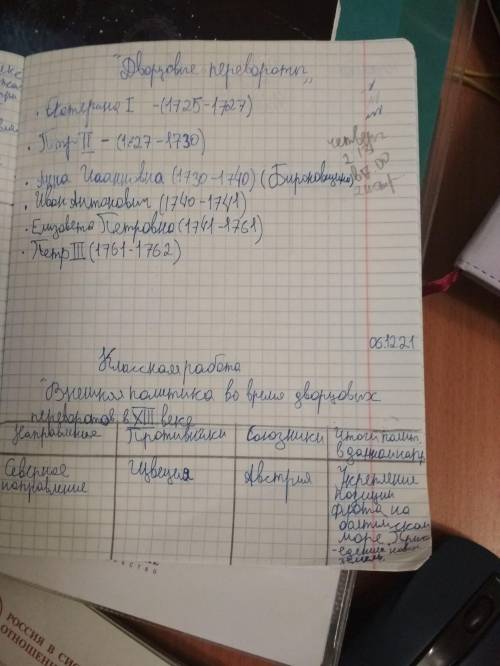 "Дворцовые перевороты"
· Екатерина I - (1725-1727)
· Петр II - (1727-1730)
· Анна Иоанновна (1730-1740) (Бироновщина)
· Иван Антонович (1740-1741)
· Елизавета Петровна (1741-1761)
· Петр III (1761-1762)
четверг
06.12.21
Классная работа
"Внешняя политика во время дворцовых
переворотов в XIII веке
Направление Противники Союзники Итоги полит.
в данном напр.
Северное направление Швеция Австрия Укрепление
позиции
флота на
балтийском
море.
земель.
РОССИЯ В СИС
ОТНОШЕНИ